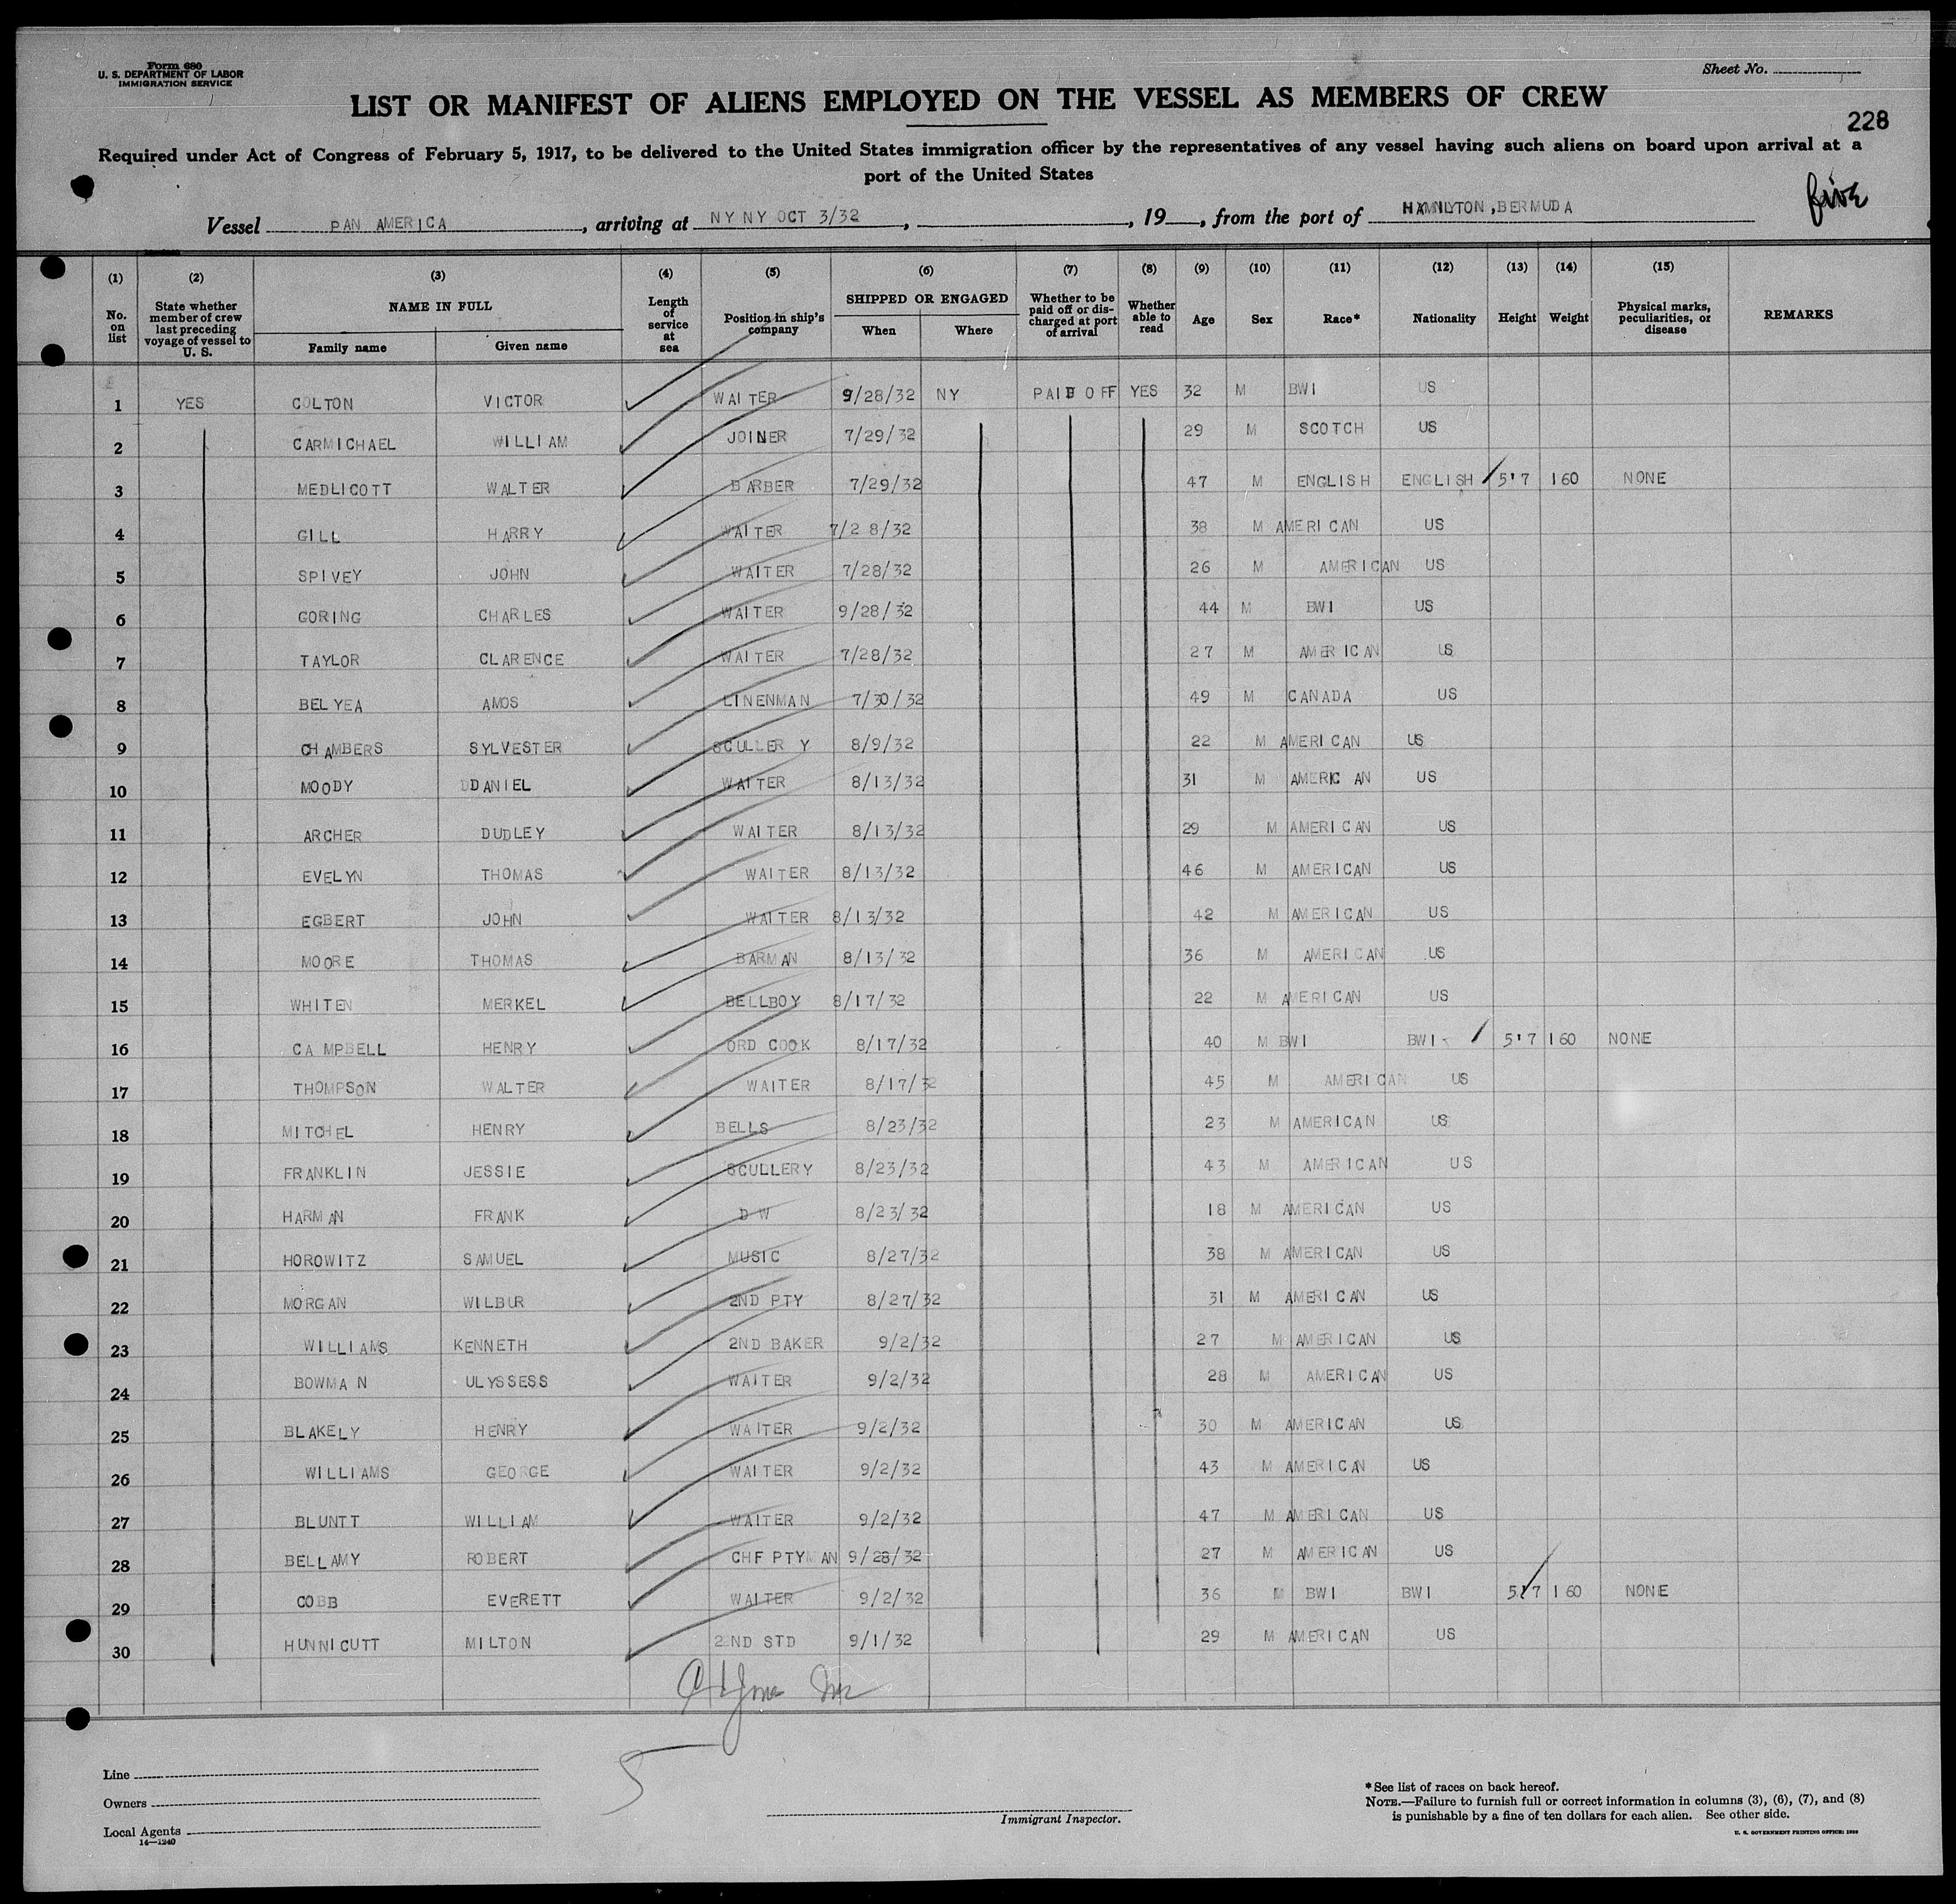 Form 680
U. S. DEPARTMENT OF LABOR
IMMIGRATION SERVICE
Sheet No.
LIST OR MANIFEST OF ALIENS EMPLOYED ON THE VESSEL AS MEMBERS OF CREW
228
Required under Act of Congress of February 5, 1917, to be delivered to the United States immigration officer by the representatives of any vessel having such aliens on board upon arrival at a
port of the United States
five
Vessel PAN AMERICA, arriving at NY NY OCT 3/32, , 19 , from the port of HAMILTON, BERMUDA
(1) (2) (3) (4) (5) (6) (7) (8) (9) (10) (11) (12) (13) (14) (15)
No. on list State whether member of crew last preceding voyage of vessel to U. S. NAME IN FULL Family name Given name Length of service at sea Position in ship's company SHIPPED OR ENGAGED When Where Whether to be paid off or discharged at port of arrival Whether able to read Age Sex Race* Nationality Height Weight Physical marks, peculiarities, or disease REMARKS
1 YES COLTON VICTOR WAITER 9/28/32 NY PAID OFF YES 32 M BWI US
2 CARMICHAEL WILLIAM JOINER 7/29/32 29 M SCOTCH US
3 MEDLICOTT WALTER BARBER 7/29/32 47 M ENGLISH ENGLISH 5'7 160 NONE
4 GILL HARRY WAITER 7/28/32 38 M AMERICAN US
5 SPIVEY JOHN WAITER 7/28/32 26 M AMERICAN US
6 GORING CHARLES WAITER 9/28/32 44 M BWI US
7 TAYLOR CLARENCE WAITER 7/28/32 27 M AMERICAN US
8 BELYEA AMOS LINENMAN 7/30/32 49 M CANADA US
9 CHAMBERS SYLVESTER SCULLERY 8/9/32 22 M AMERICAN US
10 MOODY DDANIEL WAITER 8/13/32 31 M AMERICAN US
11 ARCHER DUDLEY WAITER 8/13/32 29 M AMERICAN US
12 EVELYN THOMAS WAITER 8/13/32 46 M AMERICAN US
13 EGBERT JOHN WAITER 8/13/32 42 M AMERICAN US
14 MOORE THOMAS BARMAN 8/13/32 36 M AMERICAN US
15 WHITEN MERKEL BELLBOY 8/17/32 22 M AMERICAN US
16 CAMPBELL HENRY ORD COOK 8/17/32 40 M BWI BWI 5'7 160 NONE
17 THOMPSON WALTER WAITER 8/17/32 45 M AMERICAN US
18 MITCHEL HENRY BELLS 8/23/32 23 M AMERICAN US
19 FRANKLIN JESSIE SCULLERY 8/23/32 43 M AMERICAN US
20 HARMAN FRANK D W 8/23/32 18 M AMERICAN US
21 HOROWITZ SAMUEL MUSIC 8/27/32 38 M AMERICAN US
22 MORGAN WILBUR 2ND PTY 8/27/32 31 M AMERICAN US
23 WILLIAMS KENNETH 2ND BAKER 9/2/32 27 M AMERICAN US
24 BOWMAN ULYSSESS WAITER 9/2/32 28 M AMERICAN US
25 BLAKELY HENRY WAITER 9/2/32 30 M AMERICAN US
26 WILLIAMS GEORGE WAITER 9/2/32 43 M AMERICAN US
27 BLUNTT WILLIAM WAITER 9/2/32 47 M AMERICAN US
28 BELLAMY ROBERT CHF PTYMAN 9/28/32 27 M AMERICAN US
29 COBB EVERETT WAITER 9/2/32 36 M BWI BWI 5'7 160 NONE
30 HUNNICUTT MILTON 2ND STD 9/1/32 29 M AMERICAN US
5
Line
Owners
Local Agents
14—1240
Immigrant Inspector.
*See list of races on back hereof.
NOTE.—Failure to furnish full or correct information in columns (3), (6), (7), and (8)
is punishable by a fine of ten dollars for each alien. See other side.
U. S. GOVERNMENT PRINTING OFFICE: